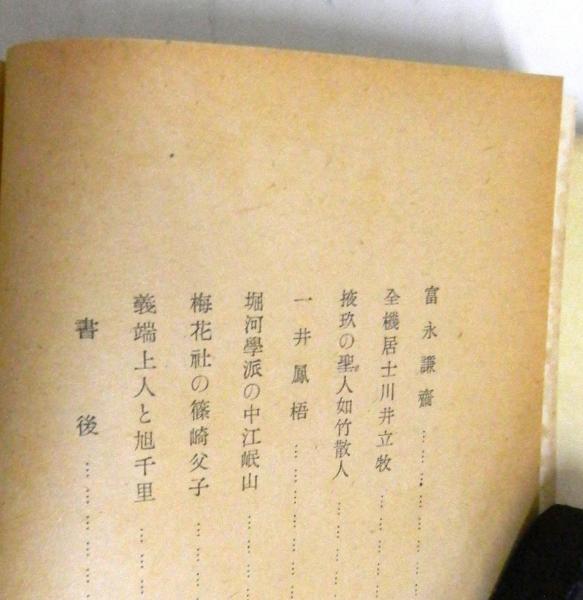 富永謙齋………………
全機居士川井立牧…………
掖玖の聖人如竹散人…………
一井鳳梧………………
堀河學派の中江岷山…………
梅花社の篠崎父子…………
義端上人と旭千里…………
書後………………